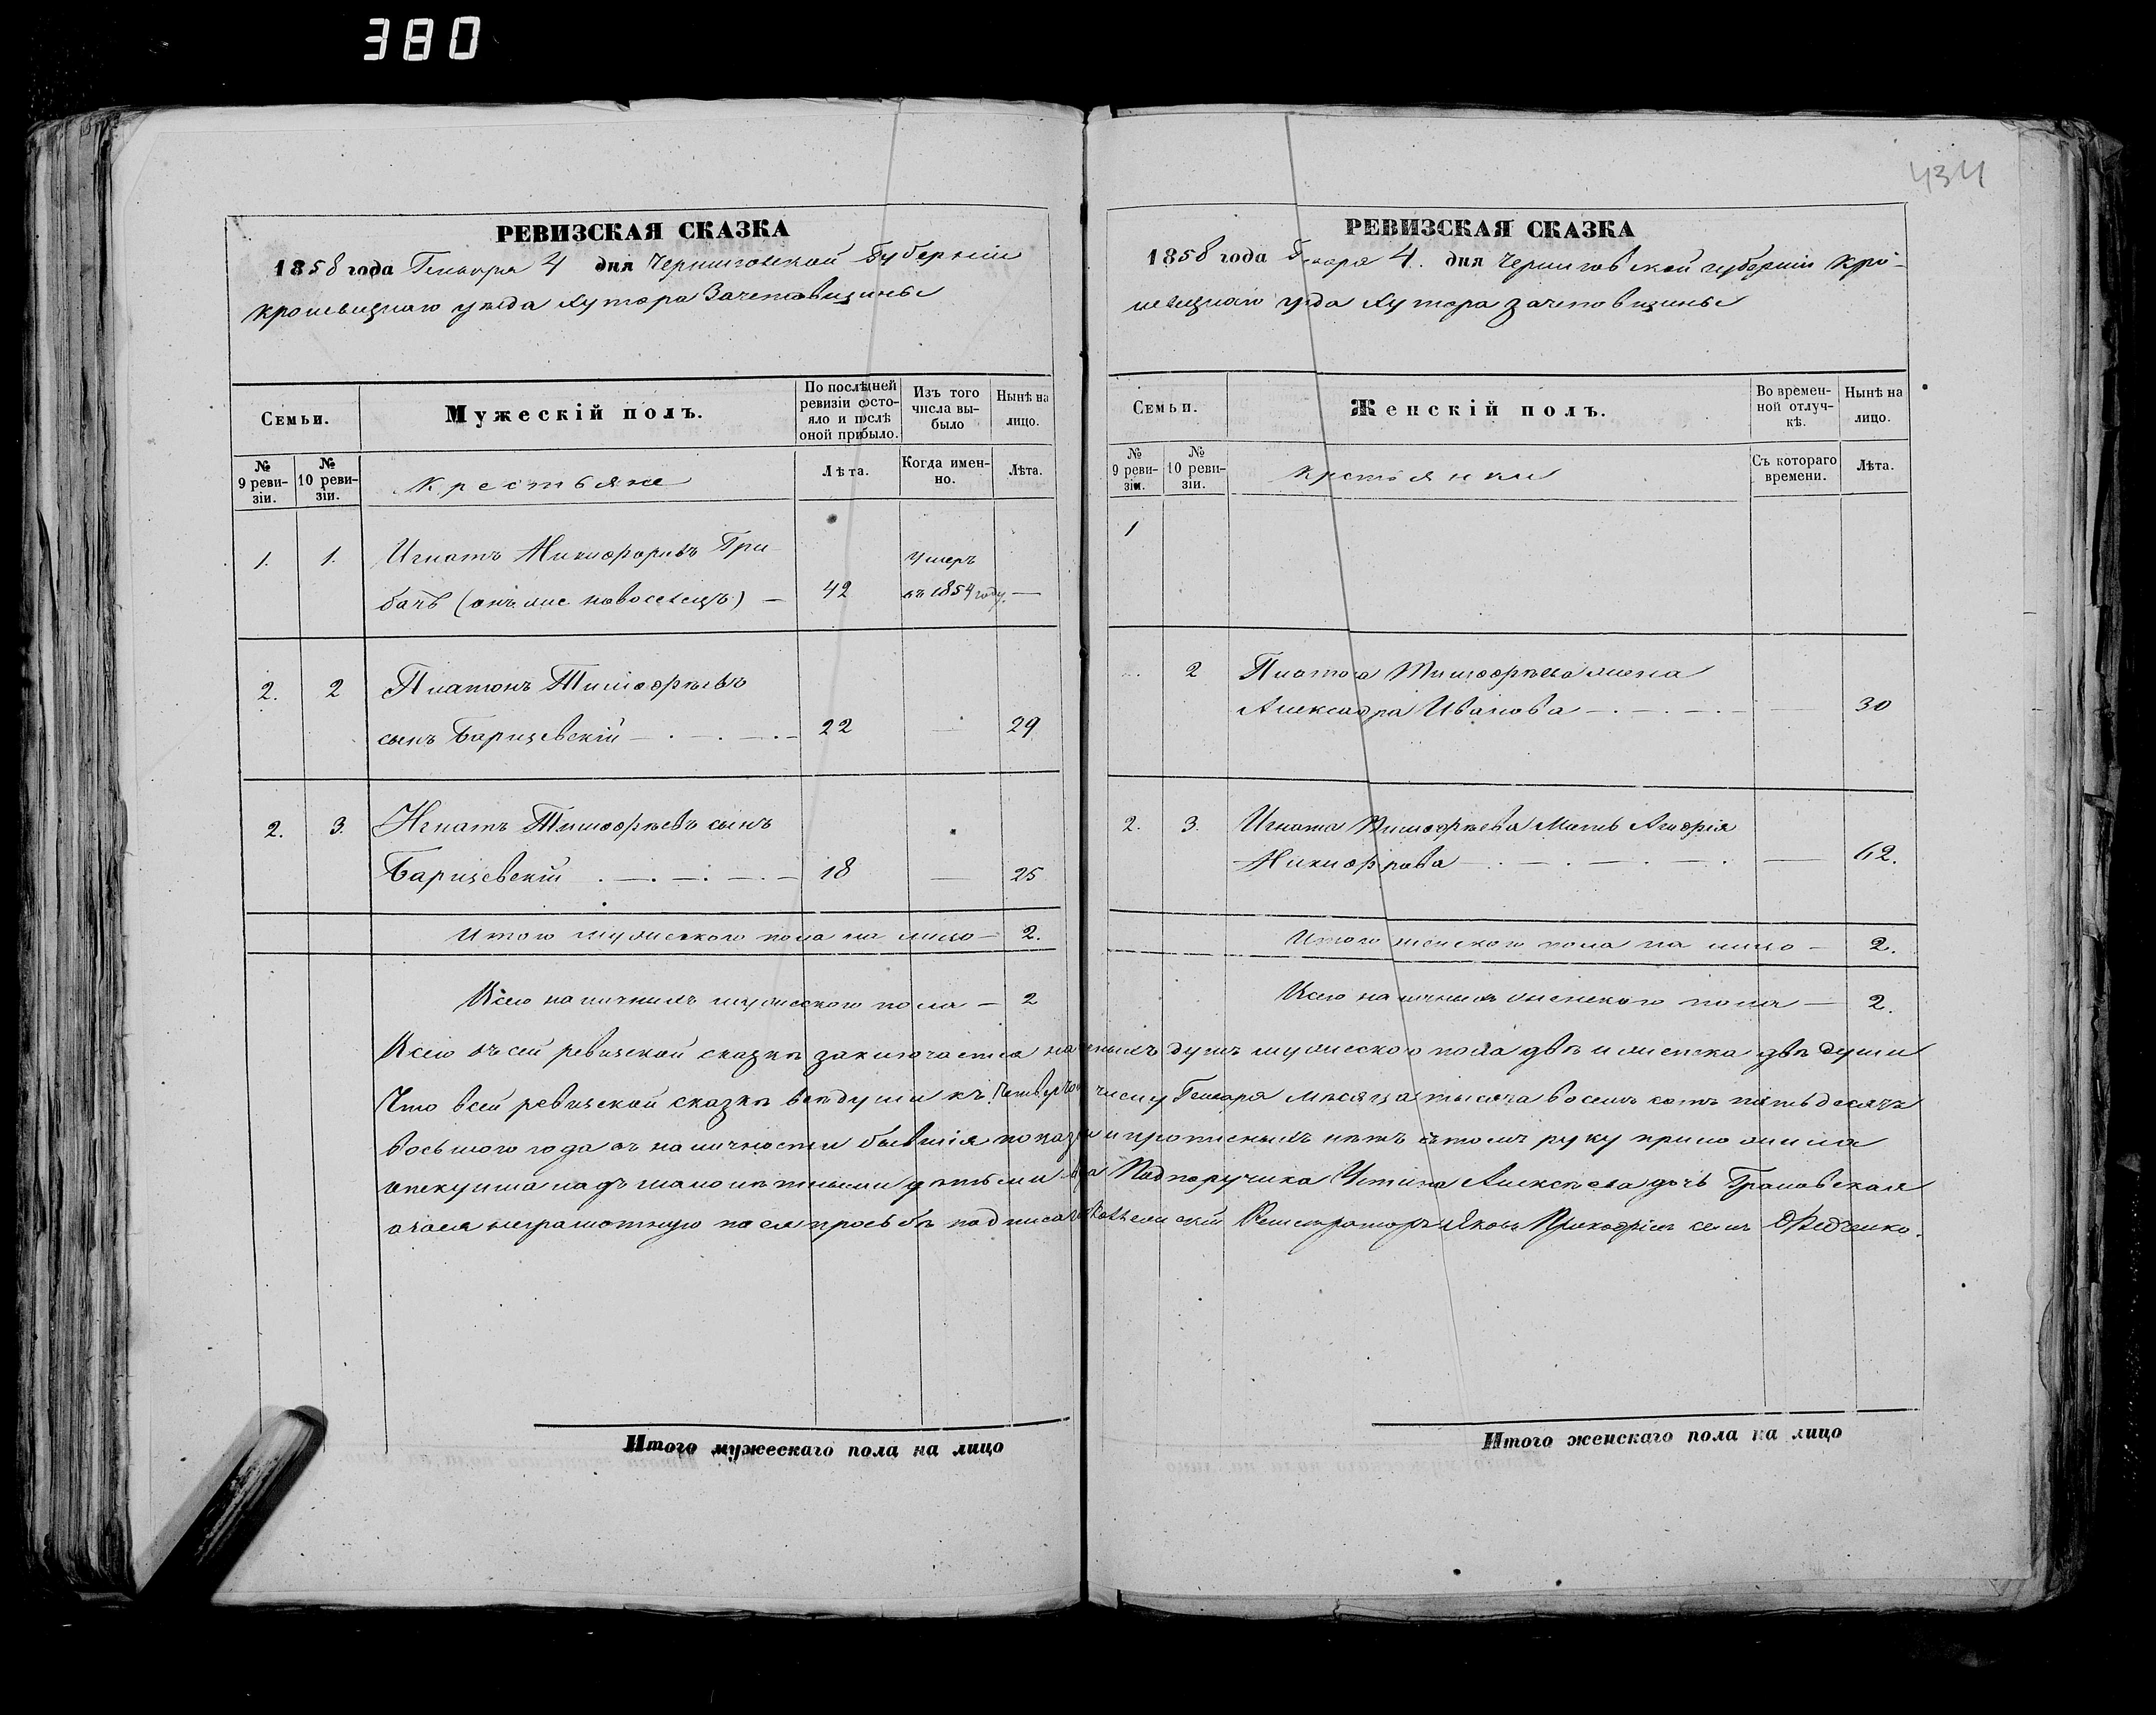 380
434
РЕВИЗСКАЯ СКАЗКА
1858 года Генваря 4 дня Черниговской Губерніи
Кролевецкаго уѣзда Хутора Зачетовщины
Семьи.
Мужескій полъ.
По послѣдней ревизіи состояло и послѣ оной прибыло.
Изъ того числа выбыло
Нынѣ на лицо.
№ 9 ревизіи.
№ 10 ревизіи.
Крестьяне
Лѣта.
Когда именно.
Лѣта.
1. 1. Игнатъ Никифоровъ Гри- Умеръ
бачъ (онъ же новоселецъ) — 42 въ 1854 году. —
2. 2 Платонъ Тимофѣевъ
сынъ Барщевскій 22 — 29
2. 3. Игнатъ Тимофѣевъ сынъ
Барщевскій 18 — 25
Итого мужескаго пола на лицо — 2.
Всего наличныхъ мужескаго пола — 2
РЕВИЗСКАЯ СКАЗКА
1858 года Генваря 4. дня Черниговской губерніи Кро-
левецкаго уѣзда Хутора Зачетовщины
Семьи.
Женскій полъ.
Во временной отлучкѣ.
Нынѣ на лицо.
№ 9 ревизіи.
№ 10 ревизіи.
Крестьянки
Съ котораго времени.
Лѣта.
1
2 Платона Тимофѣева жена
Александра Иванова — 30
2. 3. Игната Тимофѣева Мать Агафія
Никифорова — 62.
Итого женскаго пола на лицо — 2.
Всего наличныхъ женскаго пола — 2.
Всего въ сей ревизской сказкѣ заключается наличныхъ душъ мужескаго пола двѣ и женска двѣ души
Что всей ревизской сказкѣ всѣ души къ Четвертому числу Генваря мѣсяца тысяча восемь сотъ пятьдесятъ
восьмого года въ наличности бывшія показаны и прописныхъ нѣтъ въ томъ руку приложила
опекунша надъ малолѣтными дѣтьми Подпоручика Устина Алексѣева дочь Грановская
а за ея неграмотную по ея прозьбѣ подписалъ Коллежскій Регистраторъ Яковъ Прокофіевъ сынъ Федченко.
Итого мужескаго пола на лицо
Итого женскаго пола на лицо